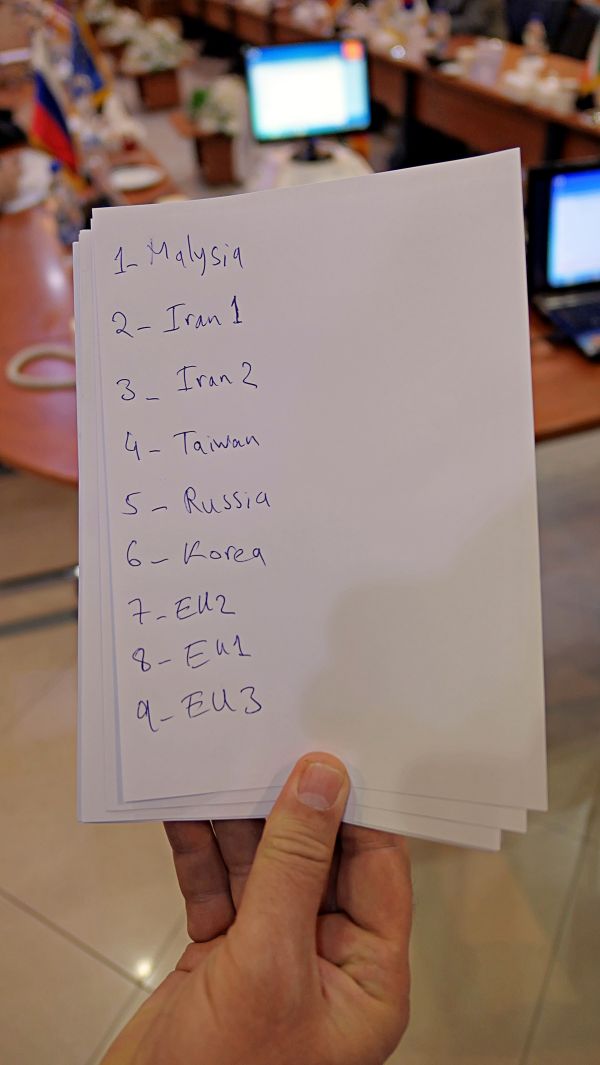 1- Malysia
2- Iran 1
3- Iran 2
4- Taiwan
5- Russia
6- Korea
7- EU2
8- EU1
9- EU3